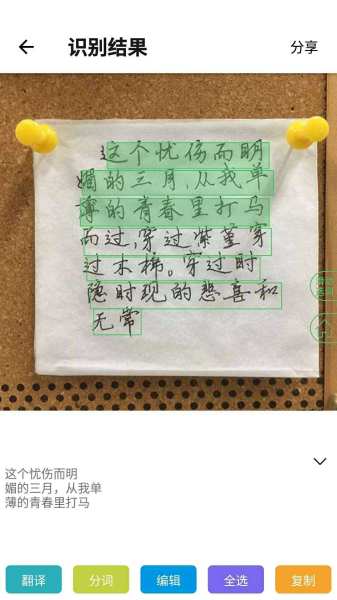 识别结果
分享
这个忧伤而明
媚的三月,从我单
薄的青春里打马
而过,穿过紫堇穿
过木棉。穿过时
隐时现的悲喜和
无常
这个忧伤而明
媚的三月，从我单
薄的青春里打马
翻译
分词
编辑
全选
复制